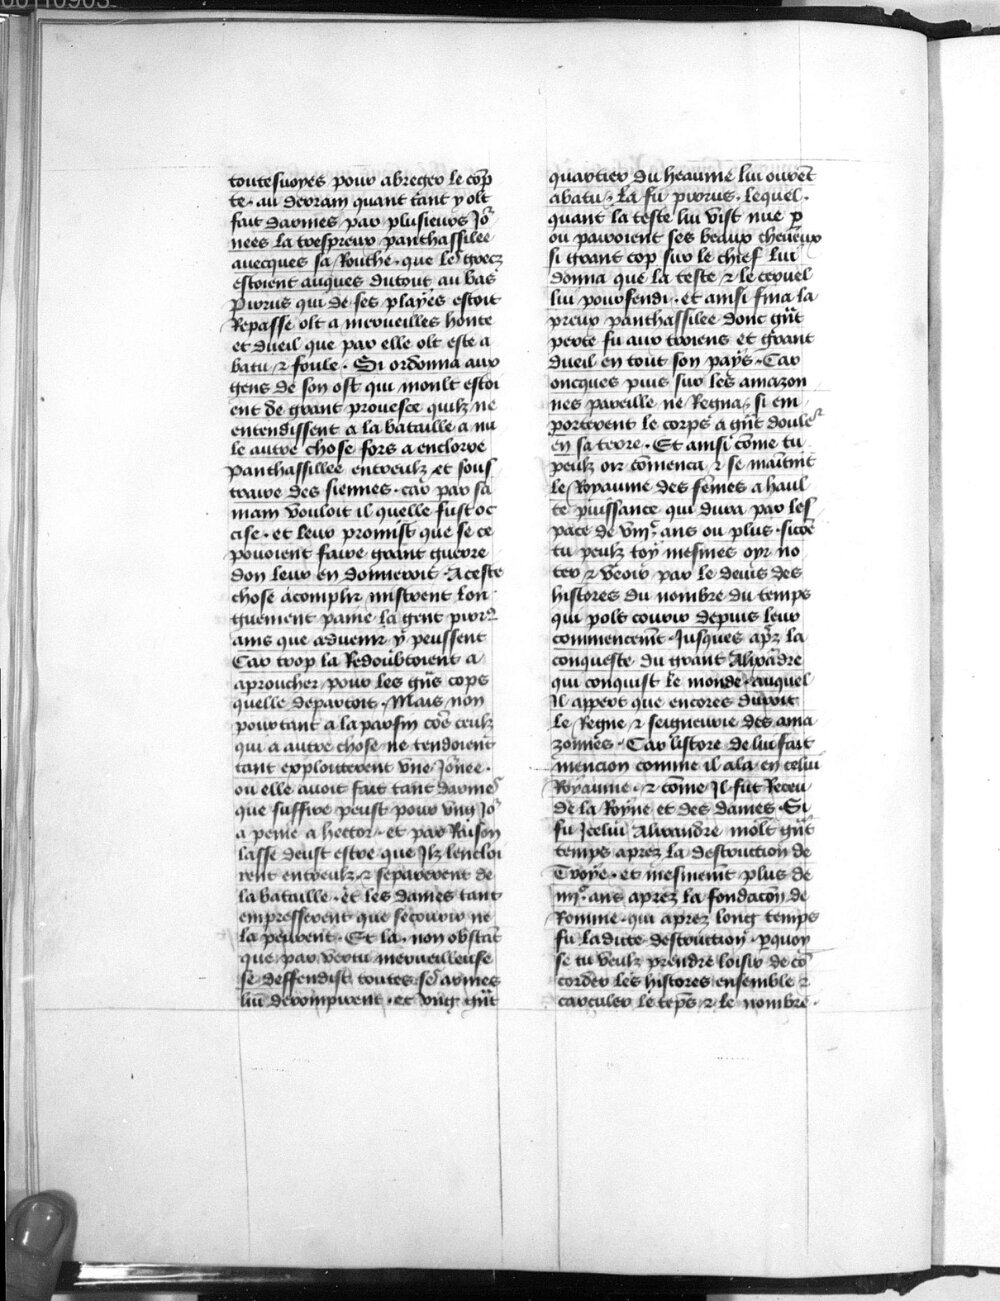 toutesuoyes pour abreger le cōp
te · au derrain quant tant y olt
fait darmes par plusieurs Jo᷒
nees la trespreux panthassilee
auecques sa Routhe · que les grecz
estoient auques dutout au bas
Pirrus qui de ses playes estoit
Repasse olt a merueilles honte
et dueil que par elle olt este a
batu ⁊ foule · Si ordonna aux
gens de son ost qui moult estoi
ent de grant prouesce quilz ne
entendissent a la bataille a nu
le autre chose fors a enclorre
panthassillee entreulz et sous
traire des siennes · car par sa
main vouloit il quelle fust oc
cise · et leur promist que se ce
pouoient faire grant guerre
don leur en donneroit · A ceste
chose acomplir mistrent lon
guement paine la gent pirr᷒
ains que aduenir y peussent
Car trop la Redoubtoient a
aproucher pour les gñs cops
quelle departoit · Mais non
pourtant a la parfin cōe ceulz
qui a autre chose ne tendoient
tant exploiterent vne Jo᷒nee ·
ou elle auoit fait tant darmes
que suffire peust pour vng Jo᷒
a peine a hector · et par Raison
lasse deust estre que Jlz lencloi
rent entreulz ⁊ separerent de
la bataille · et les dames tant
empresserent que secourir ne
la peurent · Et la · non obstāt
que par vertu merueilleuse
se deffendist toutes ses armes
lui derompirent · et vng gñt
quartier du heaume lui ouurēt
abatu · La fu pirrus · lequel ·
quant la teste lui vist nue p̲
ou paroient ses beaux cheueux
si grant cop sur le chief lui
donna que la teste ⁊ le ceruel
lui pourfendi · et ainsi fina la
preux panthassilee donc gñt
perte fu aux troiens et grant
dueil en tout son pays · Car
oncques puis sur les amazon
nes pareille ne Regna · si em
porterent le corps a gñt doule᷒
en sa terre · Et ainsi cōme tu
peulz oir cōmenca ⁊ se maītint
le Royaume des fēmes a haul
te puissance qui dura par les
pace de viijᶜ ans ou plus · sicōe
tu peulz toy mesmes oyr no
ter ⁊ veoir par le deuis des
histores du nombre du temps
qui polt courir depuis leur
commencemt̄ · Jusques apr̄z la
conqueste du grant Alixādre
qui conquist le monde · auquel
il appert que encores duroit
le Regne ⁊ seigneurie des ama
zonnes · Car listore de lui fait
mencion comme il ala en celui
Royaume · ⁊ cōme Jl fut Receu
de la Royne et des dames · Si
fu Jcelui Alixandre molt gñt
temps aprez la destruction de
Troye · et mesmemt̄ plus de
iiijᶜ ans aprez la fondacōn de
Romme · qui aprez long temps
fu ladicte destruction · pquoy
se tu veulz prendre loisir de cō
corder les histores ensemble ⁊
carculer le tēps ⁊ le nombre ·